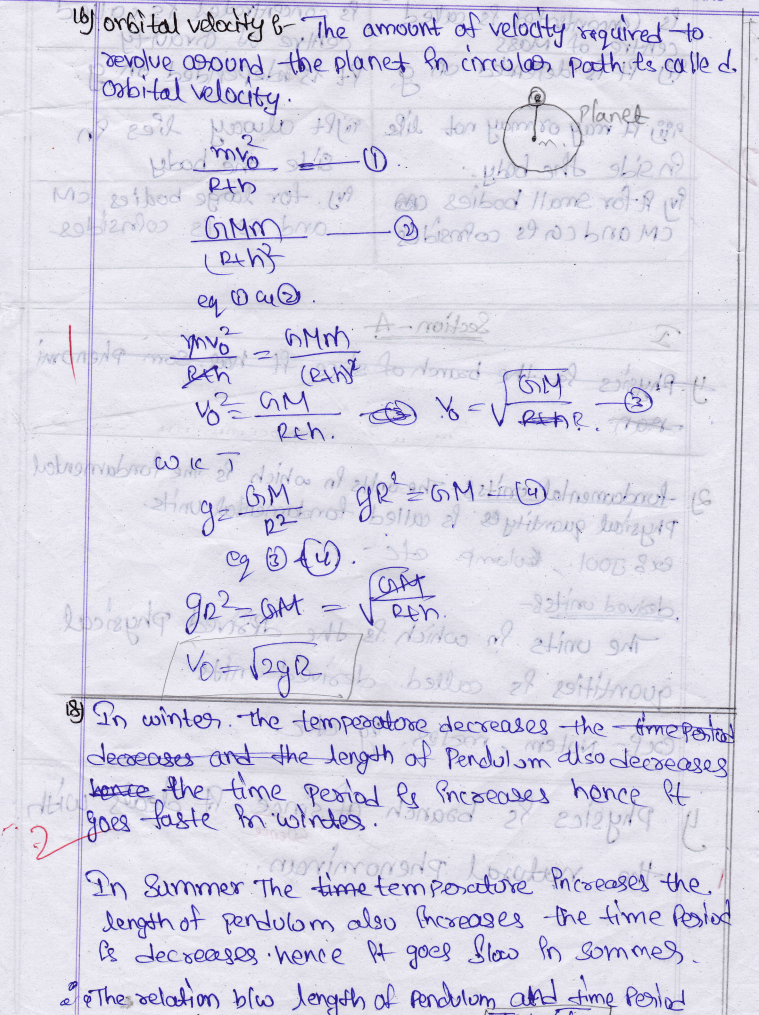 16) orbital velocity :- The amount of velocity required to
revolve around the planet in circular path is called.
Orbital velocity.
planet
m
mv₀²/R+h = —— ①
GMm/(R+h)² —— ②
eq ① & ②.
mv₀²/R+h = GMm/(R+h)²
v₀² = GM/R+h. V₀ = √GM/R+h R. —— ③
W K T
g = GM/R² gR² = GM — ④
eq ③ & ④.
gR² = GM = √GM/R+h.
V₀ = √2gR
18) In winter. the temperature decreases the time period
decreases and the length of Pendulum also decreases
hence the time period is increases hence it
goes faste in winter.
2
In Summer The time temperature increases the.
length of pendulum also increases the time Period
is decreases. hence it goes slow in sommer.
The relation b/w length of Pendulum and time Period